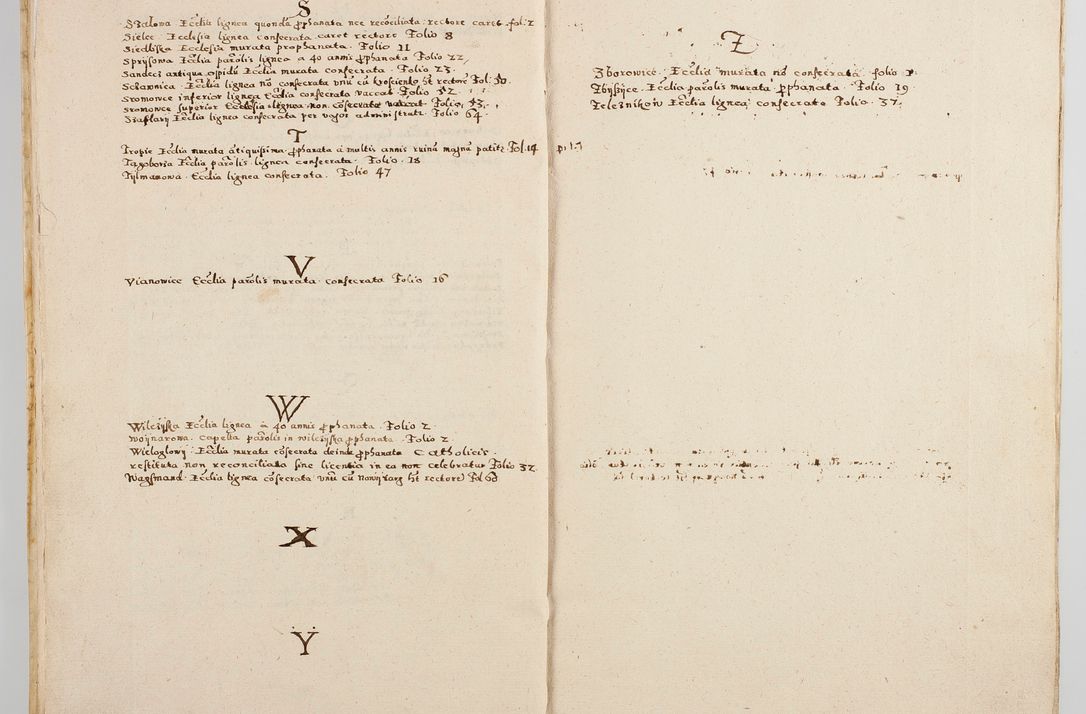 S
Szalowa Ecclia lignea quondā ꝓphanata nec recōciliata: rectore caret fol: 2
Sielec Ecclesia lignea consecrata caret rectore Folio 8
Siedliska Ecclesia murata prophanata. Folio 11
Sprysowa Ecclia parōlis lignea a 40 annis ꝓphanata Folio 22
Sandecz antiqua opidū Ecclia murata consecrata. Folio 23.
Sczawnica. Ecclia lignea nō consecrata vnū cū krosienko ht rectorē Fol: 50.
Sromowce inferior lignea Ecclia consecrata vaccat Folio 52.
Sromowce superior Ecclesia lignea non cōsecrata vaccat Folio, 53.
Szaflary Ecclia lignea consecrata per vagos administrat: Folio 64.
T
Tropie Ecclia murata ātiquissima ꝓphanata à multis annis ruinā magnā patit: Fol. 14
Tagoboria Ecclia parōlis lignea consecrata. Folio. 18
Tylmanowa Ecclia lignea consecrata. Folio 47
V
Vianowice Ecclia parōlis murata consecrata Folio 16
W
Wilczyska Ecclia lignea à 40 annis ꝓphanata. Folio 2.
Woynarowa. Capella parōlis in wilczyska ꝓphanata. Folio 2
Wieloglowy Ecclia murata cōsecrata deinde ꝓphanata Catholicis
restituta non reconciliata sine licentia in ea non celebratur Folio 32.
Wagsmund Ecclia lignea cōsecrata vnū cū nowytarg ht rectorē Fol 60
X
Y
Z
Zborowice. Ecclia murata nō consecrata folio
Zbyszyce. Ecclia parōlis murata ꝓphanata. Folio 19.
Zeleznikow Ecclia lignea consecrata Folio. 37.